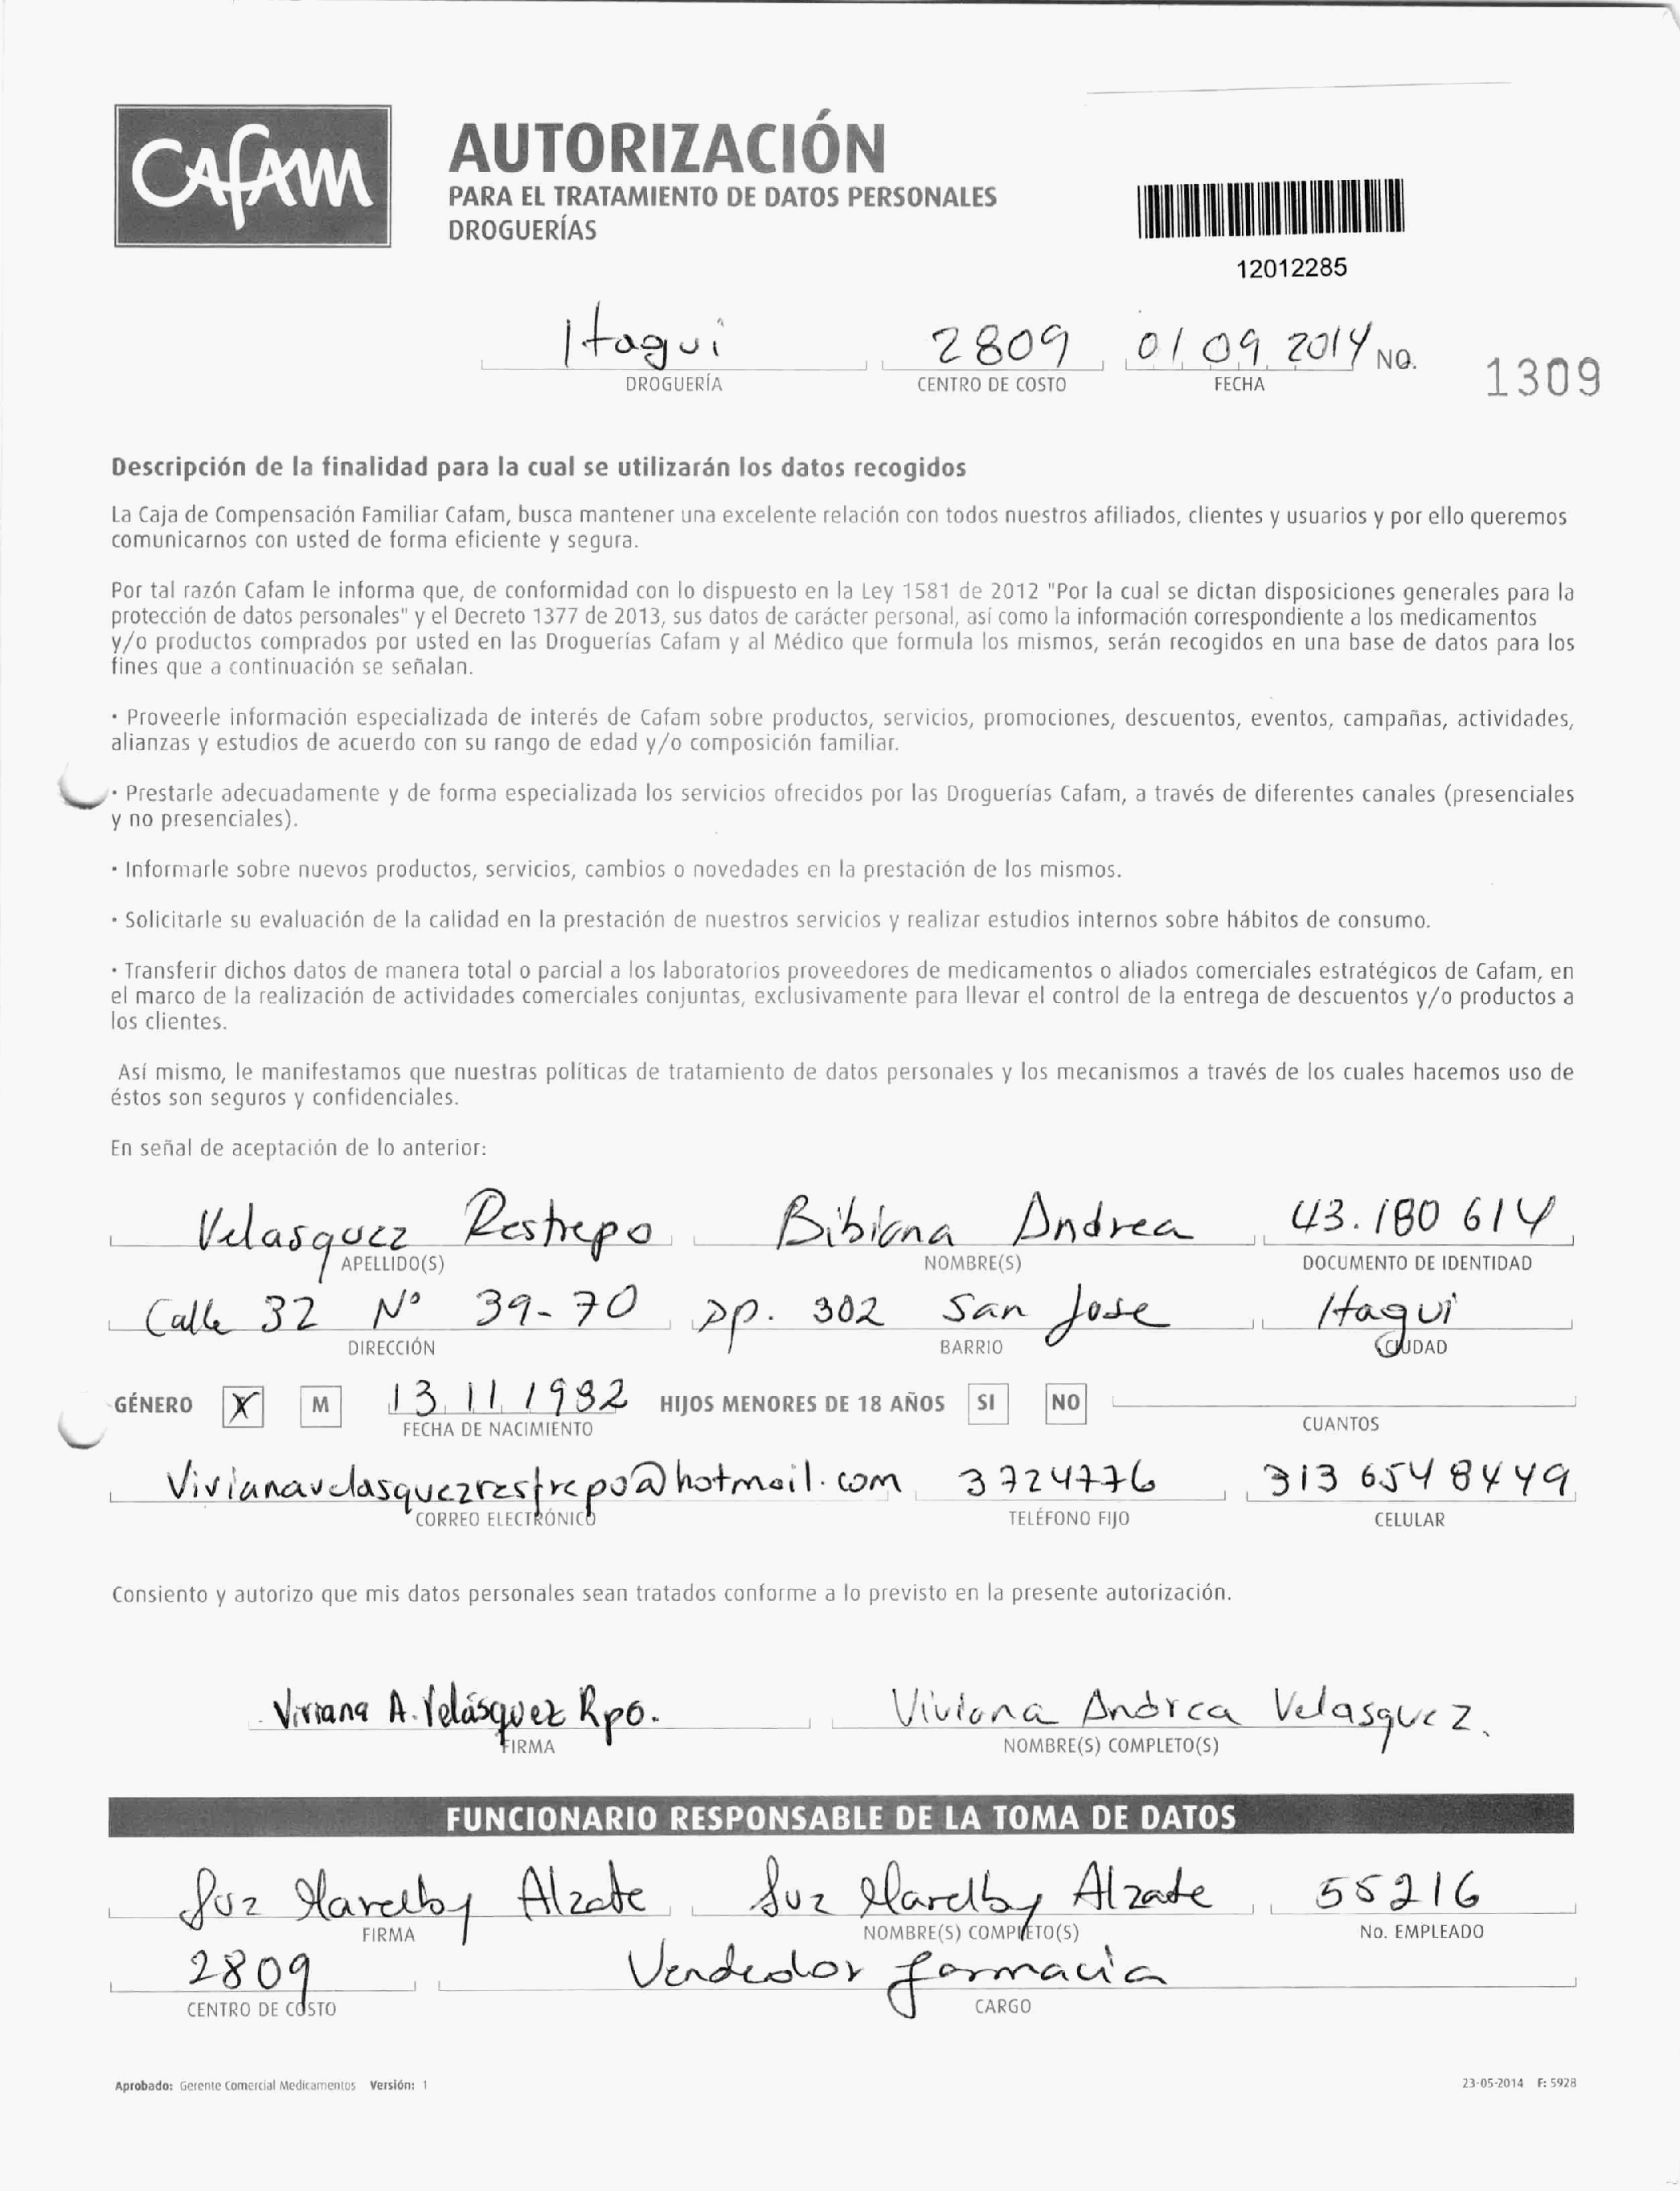 CAFAM
AUTORIZACIÓN
PARA EL TRATAMIENTO DE DATOS PERSONALES
DROGUERÍAS
12012285
Itagui 2809 01 09 2014 NO. 1309
DROGUERÍA CENTRO DE COSTO FECHA
Descripción de la finalidad para la cual se utilizarán los datos recogidos
La Caja de Compensación Familiar Cafam, busca mantener una excelente relación con todos nuestros afiliados, clientes y usuarios y por ello queremos
comunicarnos con usted de forma eficiente y segura.
Por tal razón Cafam le informa que, de conformidad con lo dispuesto en la Ley 1581 de 2012 "Por la cual se dictan disposiciones generales para la
protección de datos personales" y el Decreto 1377 de 2013, sus datos de carácter personal, así como la información correspondiente a los medicamentos
y/o productos comprados por usted en las Droguerías Cafam y al Médico que formula los mismos, serán recogidos en una base de datos para los
fines que a continuación se señalan.
· Proveerle información especializada de interés de Cafam sobre productos, servicios, promociones, descuentos, eventos, campañas, actividades,
alianzas y estudios de acuerdo con su rango de edad y/o composición familiar.
· Prestarle adecuadamente y de forma especializada los servicios ofrecidos por las Droguerías Cafam, a través de diferentes canales (presenciales
y no presenciales).
· Informarle sobre nuevos productos, servicios, cambios o novedades en la prestación de los mismos.
· Solicitarle su evaluación de la calidad en la prestación de nuestros servicios y realizar estudios internos sobre hábitos de consumo.
· Transferir dichos datos de manera total o parcial a los laboratorios proveedores de medicamentos o aliados comerciales estratégicos de Cafam, en
el marco de la realización de actividades comerciales conjuntas, exclusivamente para llevar el control de la entrega de descuentos y/o productos a
los clientes.
Así mismo, le manifestamos que nuestras políticas de tratamiento de datos personales y los mecanismos a través de los cuales hacemos uso de
éstos son seguros y confidenciales.
En señal de aceptación de lo anterior:
Velasquez Restrepo Bibiana Andrea 43.180 614
APELLIDO(S) NOMBRE(S) DOCUMENTO DE IDENTIDAD
Calle 32 N° 39-70 Ap. 302 San Jose Itagui
DIRECCIÓN BARRIO CIUDAD
GÉNERO X M 13 11 1982 HIJOS MENORES DE 18 AÑOS SI NO
FECHA DE NACIMIENTO CUANTOS
Vivianavelasquezrestrepo@hotmail.com 3724776 313 654 8449
CORREO ELECTRÓNICO TELÉFONO FIJO CELULAR
Consiento y autorizo que mis datos personales sean tratados conforme a lo previsto en la presente autorización.
Viviana A. Velásquez Rpo. Viviana Andrea Velasquez.
FIRMA NOMBRE(S) COMPLETO(S)
FUNCIONARIO RESPONSABLE DE LA TOMA DE DATOS
Luz Marelby Alzate Luz Marelby Alzate 55216
FIRMA NOMBRE(S) COMPLETO(S) No. EMPLEADO
2809 Vendedor farmacia
CENTRO DE COSTO CARGO
Aprobado: Gerente Comercial Medicamentos Versión: 1 23-05-2014 F: 5928